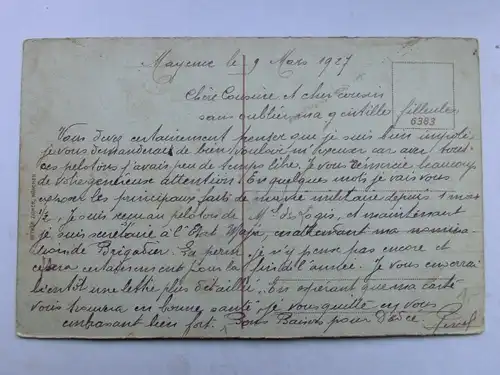 Mayence le 9 Mars 1927
Chère Cousine et cher Cousin
sans oublier ma gentille filleule
6383
Vous devez certainement penser que je suis bien impoli
je vous demanderai de bien vouloir m'excuser car avec tous
ces pelotons j'avais peu de temps libre. Je vous remercie beaucoup
de votre généreuse attention. En quelques mots je vais vous
exposer les principaux faits de ma vie militaire depuis 1 mois
½, je suis reçu au peloton de M. des Logis, et maintenant
je suis secrétaire à l'Etat Major, en attendant ma nomina
tion de Brigadier. La perm. je n'y pense pas encore et
ce sera certainement pour la fin de l'année. Je vous enverrai
bientôt une lettre plus détaillée. En espérant que ma carte
vous trouvera en bonne santé, je vous quitte en vous
embrassant bien fort. Bons Baisers pour